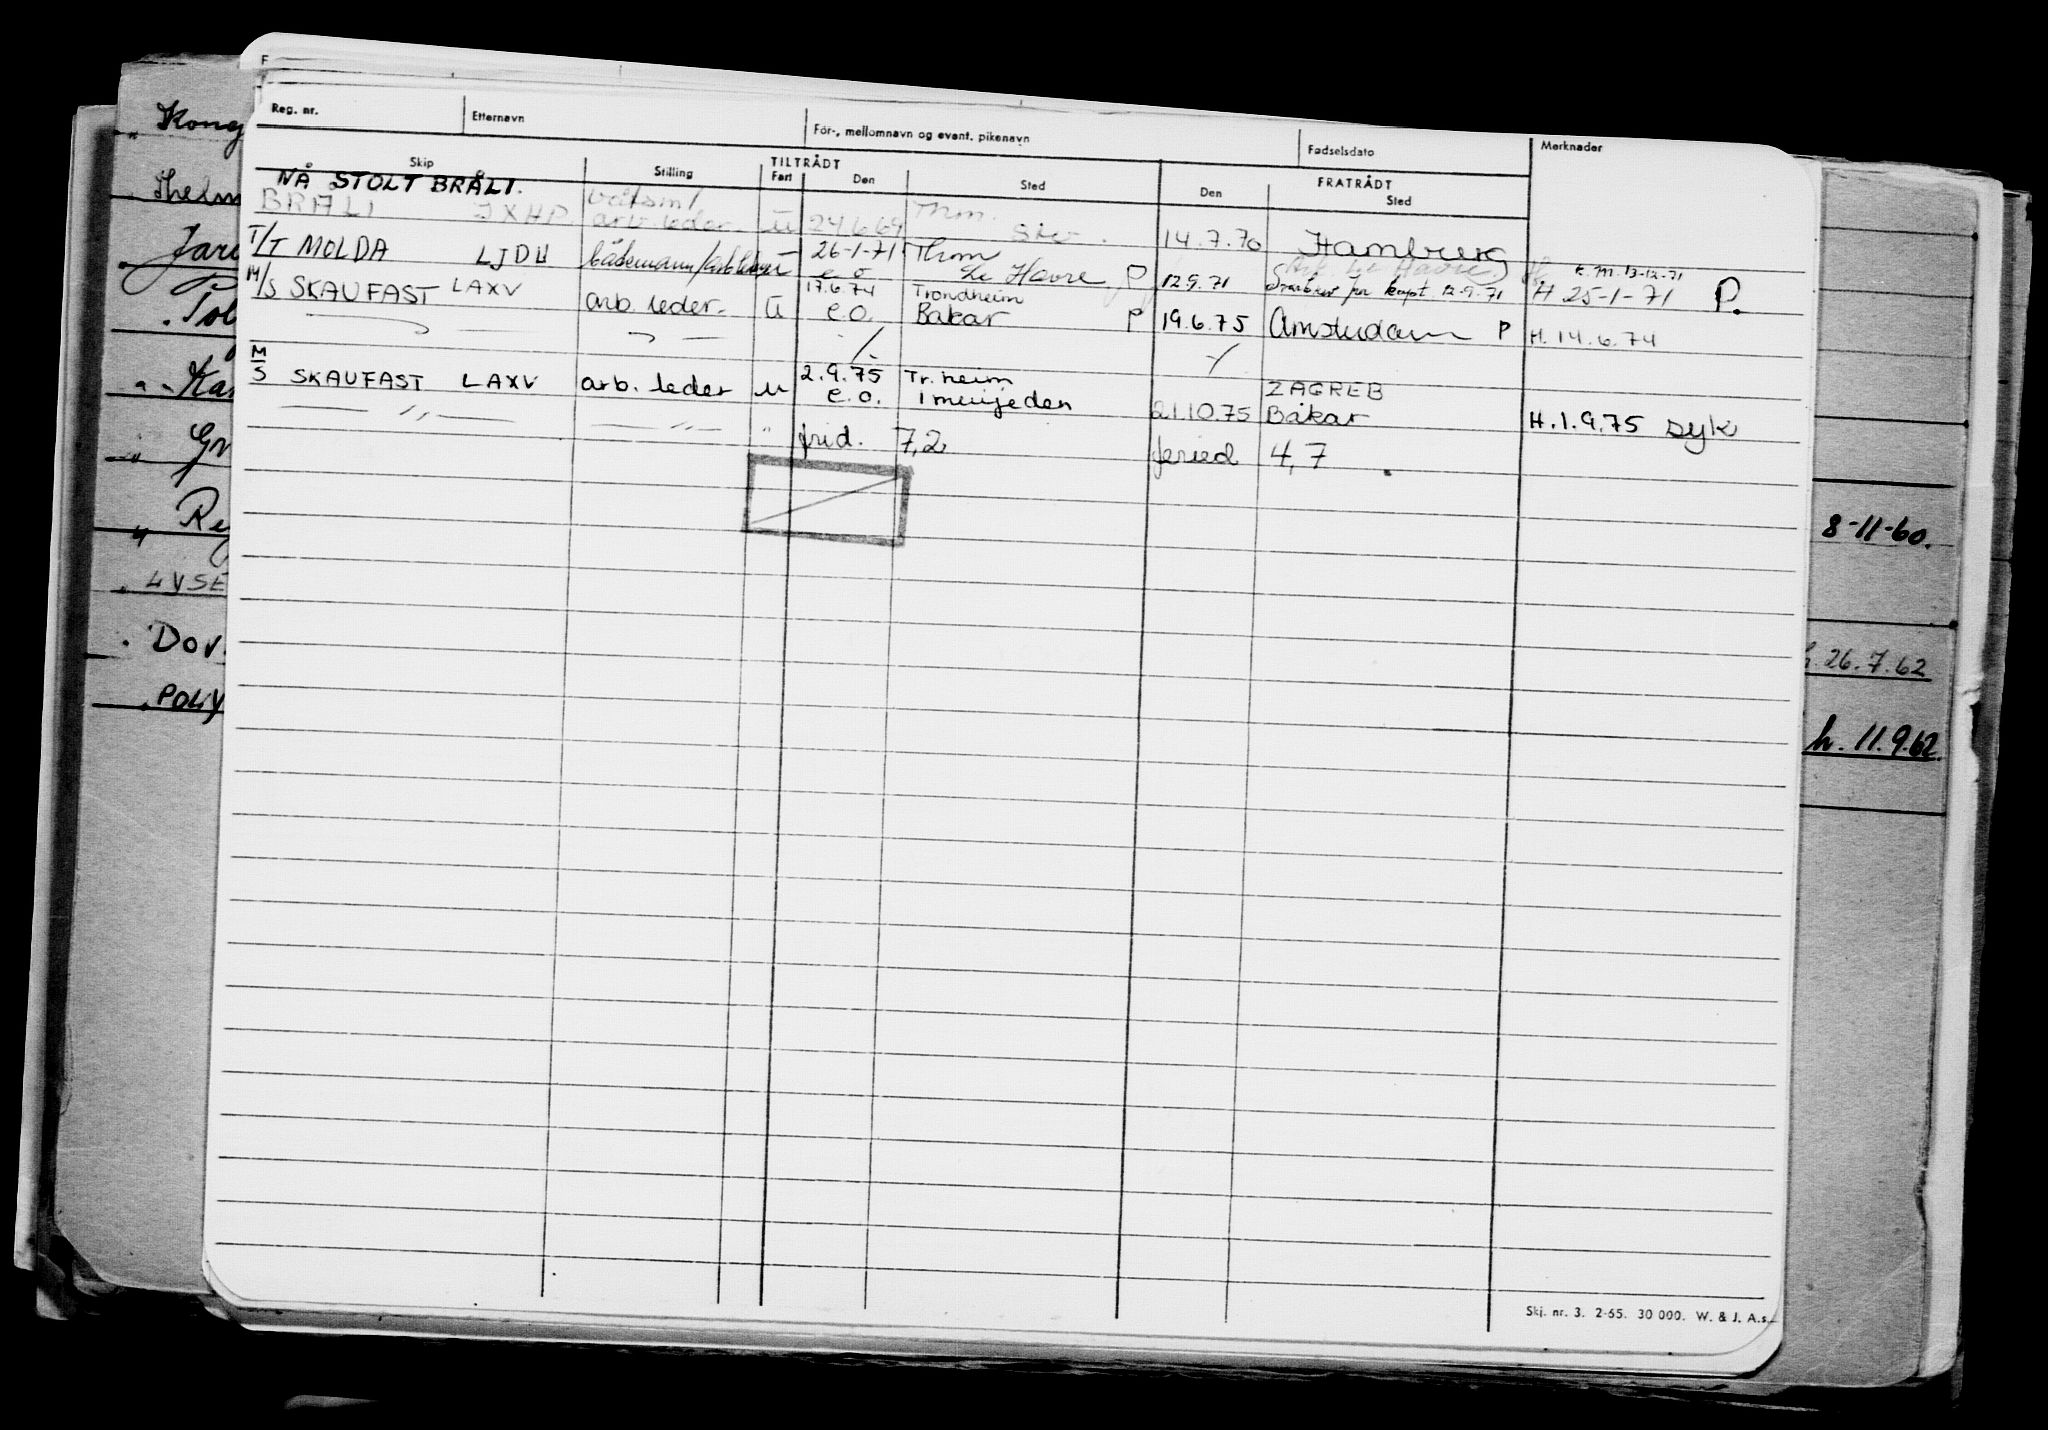 Reg. nr. Etternavn För-, mellomnavn og event. pikenavn Fødselsdato Merknader
Skip Stilling TILTRÅDT FRATRÅDT
Fart Den Sted Den Sted
NÅ STOLT BRÅLI.
BRÅLI JXHP båtsm/ Thm.
arb. leder. u 24.6.69 Sko. 14.7.70 Hamburg
T/T MOLDA LJDU båtsmann/ 26-1-71 Thm
e o Le Havre P 12.9.71 12.9.71 H 25-1-71 P.
k.m. 13-12-71
M/S SKAUFAST LAXV arb. leder. U 17.6.74 Trondheim
e.o. Bakar P 19.6.75 Amsterdam P H. 14.6.74
M/S SKAUFAST LAXV arb. leder u 2.9.75 Tr.heim ZAGREB
— " — — " — " e.o. Imuijeden 21.10.75 Bakar H. 1.9.75 syk
frid. 7,2 feried 4,7
Kong
Jar
Tol
Kar
Gr
Re
LYSE
Dov
POLY
8-11-60.
26.7.62
h. 11.9.62
Skj. nr. 3. 2-65. 30 000. W. & J. A.s.